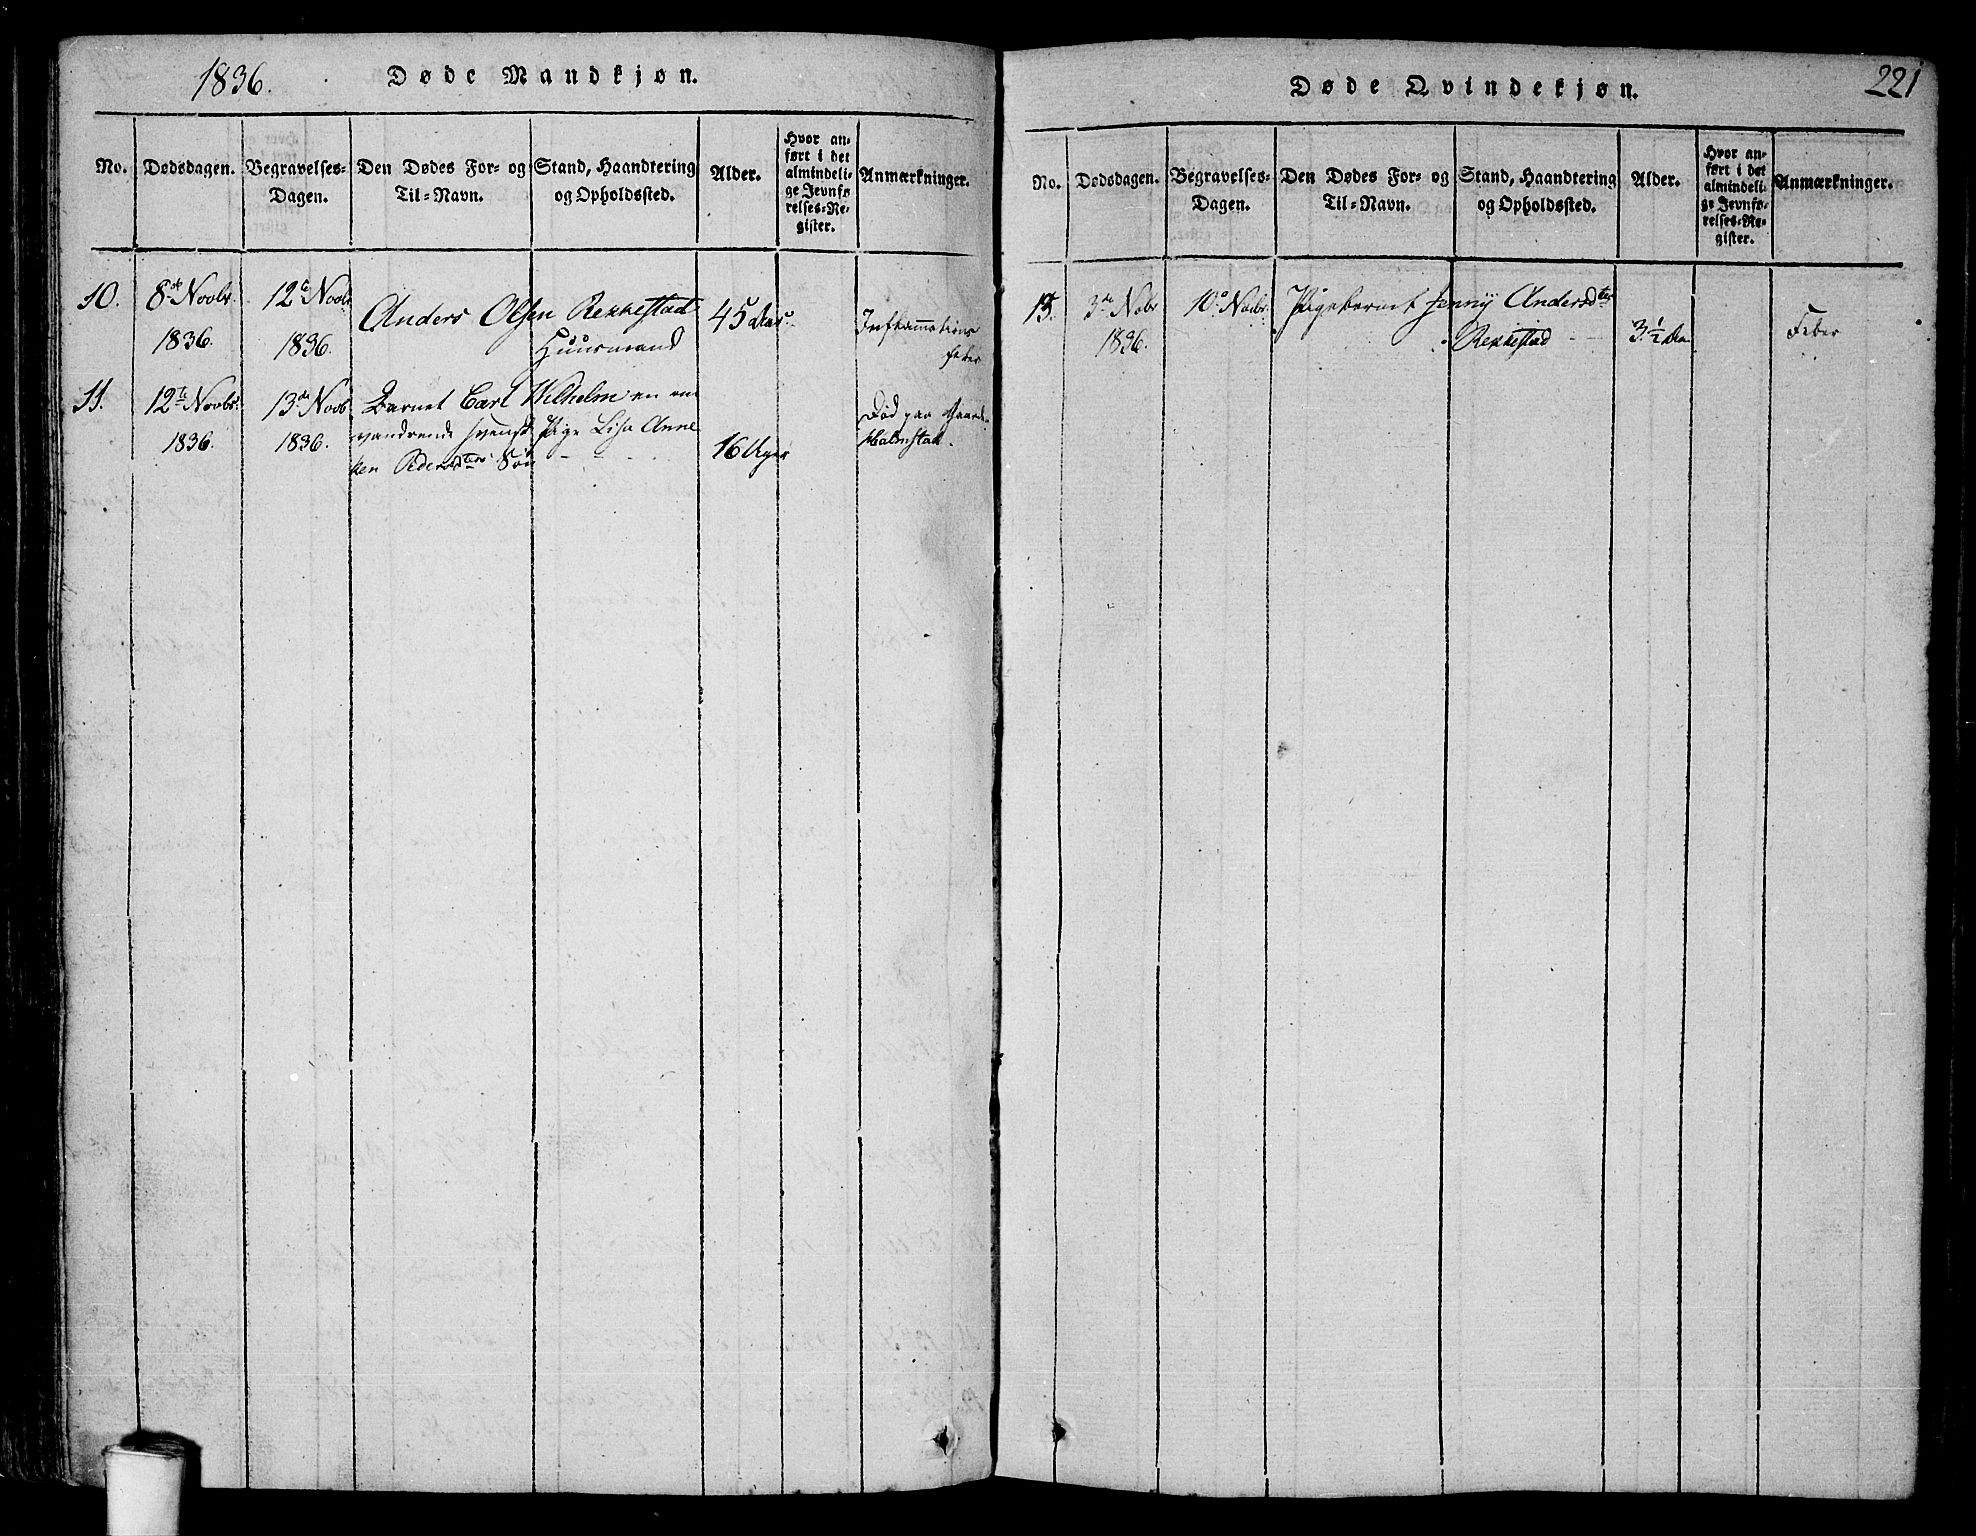 1836.
Døde Mandkjøn.
No.
Dødsdagen.
Begravelses-
Dagen.
Den Dødes For- og
Til-Navn.
Stand, Haandtering
og Opholdssted.
Alder.
Hvor an-
ført i det
almindeli-
ge Jevnfø-
relses-Re-
gister.
Anmærkninger.
10.
8de Novbr.
1836.
12te Novbr
1836.
Anders Olsen Rekkestad
Huusmand
45 Aar.
Inflammations
feber
11.
12te Novbr.
1836.
13de Novb.
1836.
Barnet Carl Wilhelm en om
vandrende svensk Pige Lisa Anne
Pedersdters Søn
16 Uger
Død paa Gaarden
Halmstad.
221
Døde Qvindekjøn.
No.
Dødsdagen.
Begravelses-
Dagen.
Den Dødes For- og
Til-Navn.
Stand, Haandtering
og Opholdssted.
Alder.
Hvor an-
ført i det
almindeli-
ge Jevnfø-
relses-Re-
gister.
Anmærkninger.
15.
3de Novbr
1836.
10de Novbr.
Pigebarnet Jenny Andersdter
Rekkestad
3½ Aar
Feber